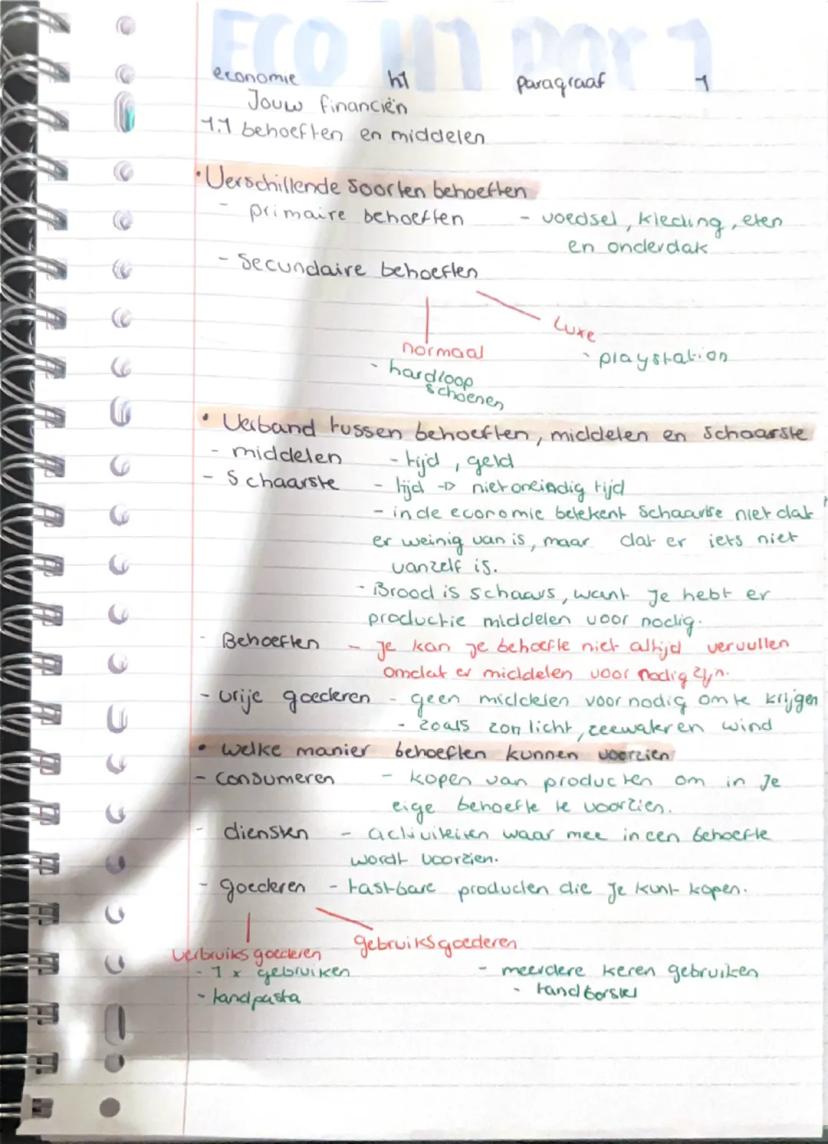 ECO H1 par 1
economie h1 paragraaf 1
Jouw financiën
1.1 behoeften en middelen
• Verschillende soorten behoeften
- primaire behoeften - voedsel, kleding, eten
en onderdak
- Secundaire behoeften
Luxe
normaal
- playstation
- hardloop
schoenen
• Verband tussen behoeften, middelen en schaarste
- middelen - tijd, geld
- Schaarste - tijd → niet oneindig tijd
- in de economie betekent schaarste niet dat
er weinig van is, maar dat er iets niet
vanzelf is.
- Brood is schaars, want je hebt er
productie middelen voor nodig.
- Behoeften - je kan je behoefte niet altijd vervullen
omdat er middelen voor nodig zijn.
- vrije goederen - geen middelen voor nodig om te krijgen
- zoals zonlicht, zeewater en wind
• welke manier behoeften kunnen voorzien
- consumeren - kopen van producten om in je
eige behoefte te voorzien.
- diensten - activiteiten waar mee in een behoefte
wordt voorzien.
- goederen - tastbare producten die je kunt kopen.
verbruiksgoederen gebruiksgoederen
- 1 x gebruiken - meerdere keren gebruiken
- tandpasta - tandborstel